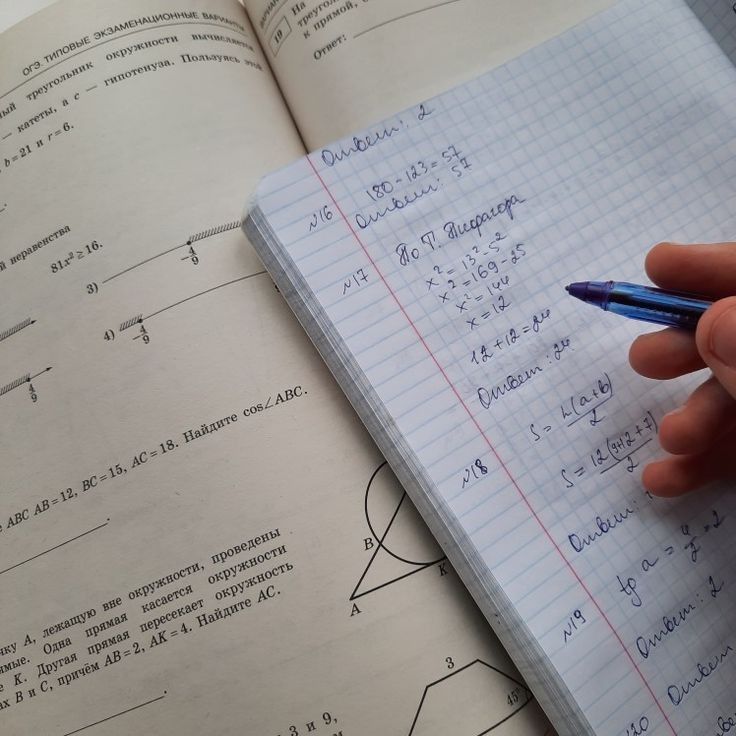 ОГЭ. ТИПОВЫЕ ЭКЗАМЕНАЦИОННЫЕ ВАРИАНТЫ
треугольник окружности вычисляется
— катеты, а c — гипотенуза. Пользуясь этой
b=21 и r=6.
неравенства
81x² ≥ 16.
3)
-4/9
4)
-4/9
4/9
ABC AB=12, BC=15, AC=18. Найдите cos∠ABC.
A, лежащую вне окружности, проведены
Одна прямая касается окружности
K. Другая прямая пересекает окружность
B и C, причём AB=2, AK=4. Найдите AC.
3 и 9,
B
A
K
3
45°
19
На
к прямой,
Ответ:
Ответ: 2
№16
180-123=57
Ответ: 57
№17
По Т. Пифагора
x²=13²-5²
x²=169-25
x²=144
x=12
12+12=24
Ответ: 24
№18
S = h(a+b)/2
S = 12(9+12+7)/2
Ответ:
№19
tg a = 4/2 = 2
Ответ: 2
№20
Ответ